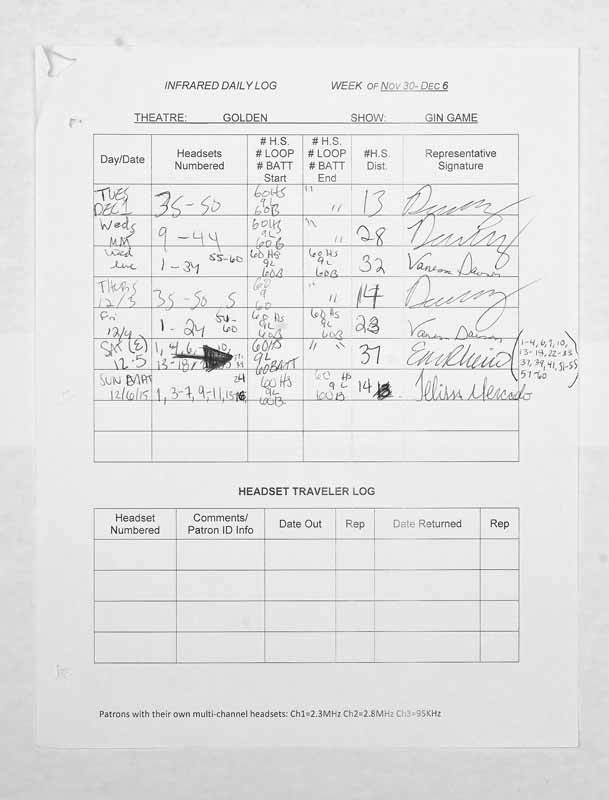 INFRARED DAILY LOG WEEK OF NOV 30- DEC 6
THEATRE: GOLDEN SHOW: GIN GAME
Day/Date
Headsets
Numbered
# H.S.
# LOOP
# BATT
Start
# H.S.
# LOOP
# BATT
End
#H.S.
Dist.
Representative
Signature
TUES
DEC 1
35-50
60HS
9L
60B
"
"
13
Weds
MAT
9-44
60HS
9L
60B
"
"
28
Wed
Eve
1-34 55-60
60 HS
9L
60B
60 HS
9L
60B
32
Vanessa
THURS
12/3
35-50 5
60
9
60
"
"
14
Fri
12/4
1-24
60 HS
9L
60B
60 HS
9L
60B
23
SAT (E)
12.5
1, 4, 6,
13-18
60HS
9L
60BATT
" "
37
(1-4, 6, 7, 10,
13-18, 22-33
37, 39, 41, 51-55
57-60)
SUN MAT
12/6/15
24
1, 3-7, 9-11,
60HS
9L
60B
60 HS
9L
60B
14
Mercado
HEADSET TRAVELER LOG
Headset
Numbered
Comments/
Patron ID Info
Date Out
Rep
Date Returned
Rep
Patrons with their own multi-channel headsets: Ch1=2.3MHz Ch2=2.8MHz Ch3=95KHz